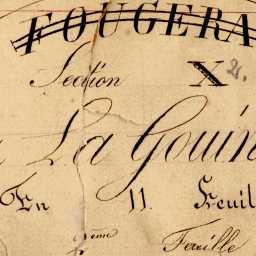 FOUGERA
Section X 2e.
La Gouin
En 11 Feuil
2ème Feuille